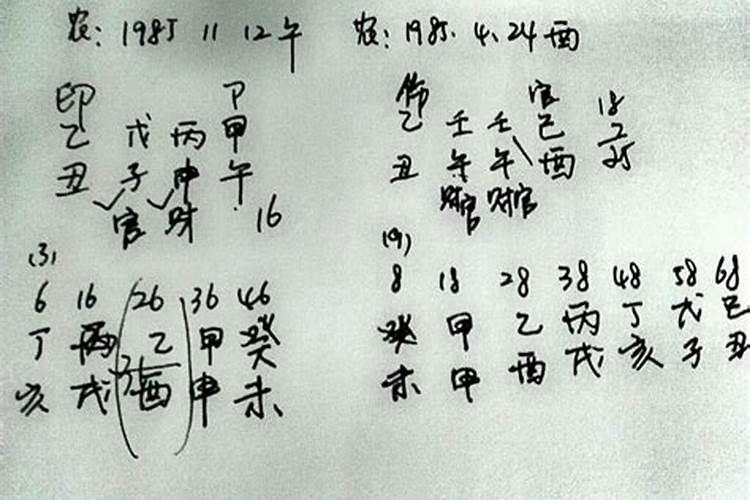 农: 1985 11 12午
印 卩
乙 戊 丙 甲
丑 子 申 午
官 财 16
(3)
6 16 26 36 46
丁 丙 乙 甲 癸
亥 戌 酉 申 未
农: 1985. 4. 24酉
伤 官
乙 壬 壬 己
丑 午 午 酉
财官 财官
18
7
25
(9)
8 18 28 38 48 58 68
癸 甲 乙 丙 丁 戊 己
未 甲 酉 戌 亥 子 丑